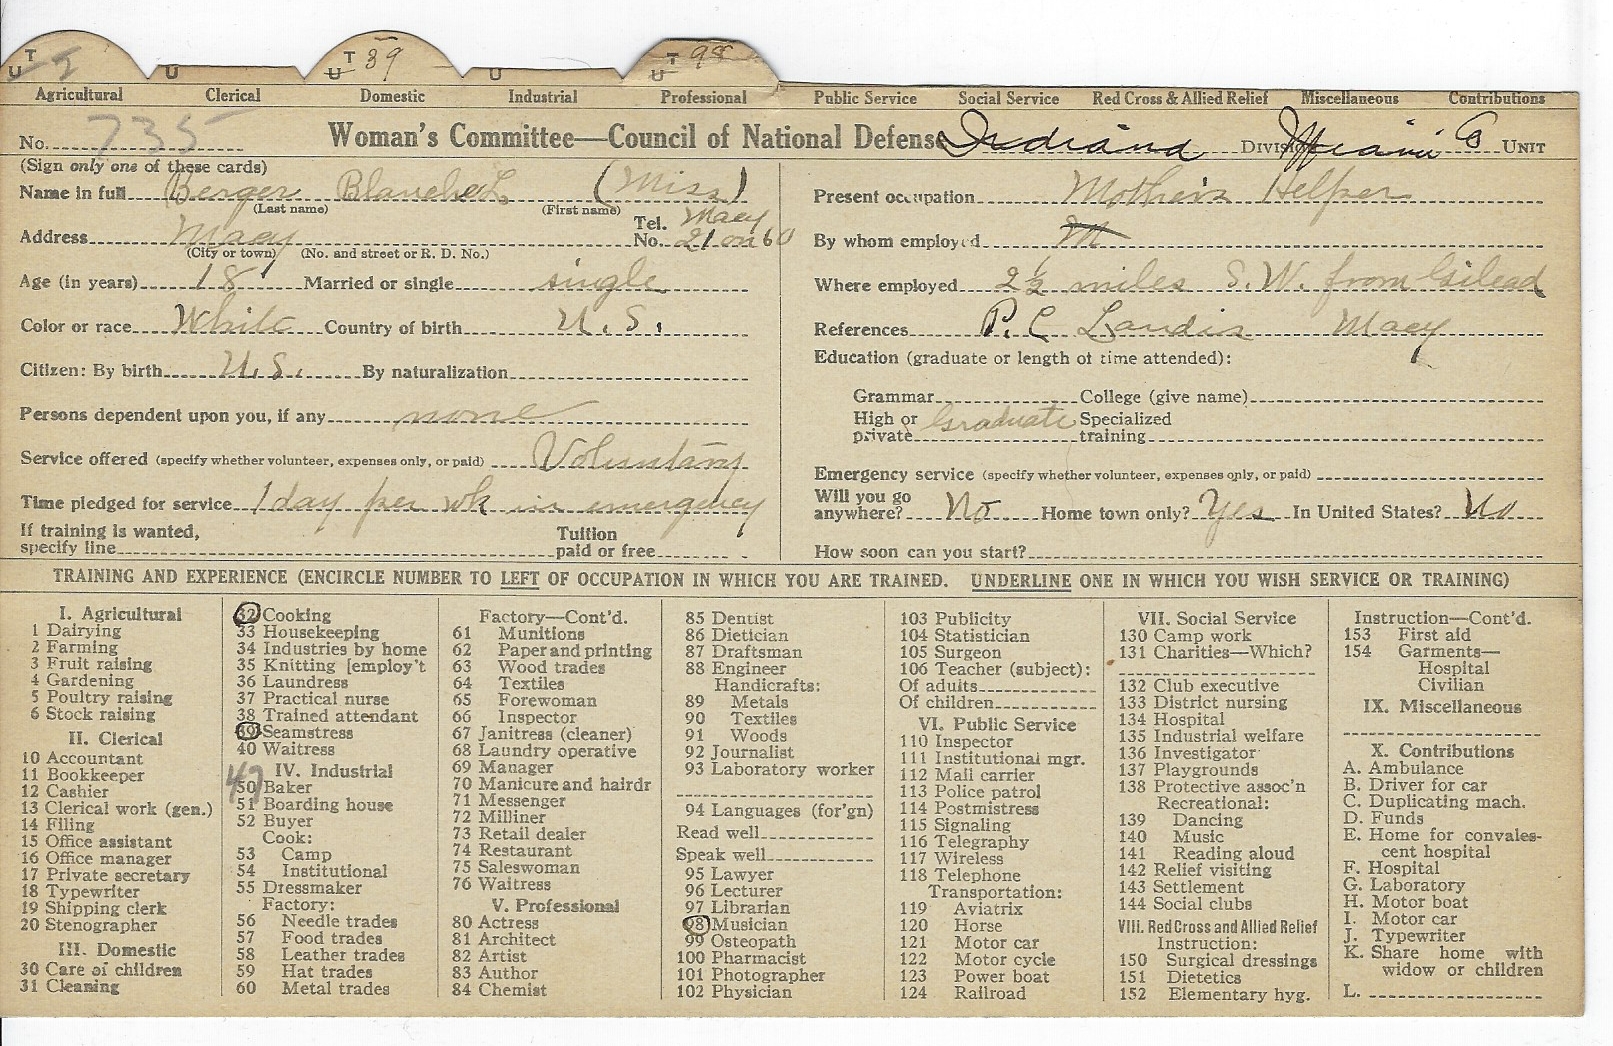 T U 5 U T U 39 U T U 98
Agricultural Clerical Domestic Industrial Professional Public Service Social Service Red Cross & Allied Relief Miscellaneous Contributions
No. 735 Woman's Committee—Council of National Defense Indiana DIVISION Miami Co UNIT
(Sign only one of these cards)
Name in full Berger Blanche L (Miss)
(Last name) (First name)
Address Macy Tel. No. Macy 21 on 60
(City or town) (No. and street or R. D. No.)
Age (in years) 18 Married or single single
Color or race White Country of birth U. S.
Citizen: By birth U. S. By naturalization
Persons dependent upon you, if any none
Service offered (specify whether volunteer, expenses only, or paid) Voluntary
Time pledged for service 1 day per wk in emergency
If training is wanted, specify line Tuition paid or free
Present occupation Mother's Helper
By whom employed M
Where employed 2½ miles S. W. from Gilead
References P. C Landis Macy
Education (graduate or length of time attended):
Grammar College (give name)
High or private Graduate Specialized training
Emergency service (specify whether volunteer, expenses only, or paid)
Will you go anywhere? No Home town only? Yes In United States? No
How soon can you start?
TRAINING AND EXPERIENCE (ENCIRCLE NUMBER TO LEFT OF OCCUPATION IN WHICH YOU ARE TRAINED. UNDERLINE ONE IN WHICH YOU WISH SERVICE OR TRAINING)
I. Agricultural
1 Dairying
2 Farming
3 Fruit raising
4 Gardening
5 Poultry raising
6 Stock raising
II. Clerical
10 Accountant
11 Bookkeeper
12 Cashier
13 Clerical work (gen.)
14 Filing
15 Office assistant
16 Office manager
17 Private secretary
18 Typewriter
19 Shipping clerk
20 Stenographer
III. Domestic
30 Care of children
31 Cleaning
32 Cooking
33 Housekeeping
34 Industries by home
35 Knitting [employ't
36 Laundress
37 Practical nurse
38 Trained attendant
39 Seamstress
40 Waitress
IV. Industrial
50 Baker
51 Boarding house
52 Buyer
Cook:
53 Camp
54 Institutional
55 Dressmaker
Factory:
56 Needle trades
57 Food trades
58 Leather trades
59 Hat trades
60 Metal trades
Factory—Cont'd.
61 Munitions
62 Paper and printing
63 Wood trades
64 Textiles
65 Forewoman
66 Inspector
67 Janitress (cleaner)
68 Laundry operative
69 Manager
70 Manicure and hairdr
71 Messenger
72 Milliner
73 Retail dealer
74 Restaurant
75 Saleswoman
76 Waitress
V. Professional
80 Actress
81 Architect
82 Artist
83 Author
84 Chemist
85 Dentist
86 Dietician
87 Draftsman
88 Engineer
Handicrafts:
89 Metals
90 Textiles
91 Woods
92 Journalist
93 Laboratory worker
94 Languages (for'gn)
Read well
Speak well
95 Lawyer
96 Lecturer
97 Librarian
98 Musician
99 Osteopath
100 Pharmacist
101 Photographer
102 Physician
103 Publicity
104 Statistician
105 Surgeon
106 Teacher (subject):
Of adults
Of children
VI. Public Service
110 Inspector
111 Institutional mgr.
112 Mail carrier
113 Police patrol
114 Postmistress
115 Signaling
116 Telegraphy
117 Wireless
118 Telephone
Transportation:
119 Aviatrix
120 Horse
121 Motor car
122 Motor cycle
123 Power boat
124 Railroad
VII. Social Service
130 Camp work
131 Charities—Which?
132 Club executive
133 District nursing
134 Hospital
135 Industrial welfare
136 Investigator
137 Playgrounds
138 Protective assoc'n
Recreational:
139 Dancing
140 Music
141 Reading aloud
142 Relief visiting
143 Settlement
144 Social clubs
VIII. Red Cross and Allied Relief
Instruction:
150 Surgical dressings
151 Dietetics
152 Elementary hyg.
Instruction—Cont'd.
153 First aid
154 Garments—
Hospital
Civilian
IX. Miscellaneous
X. Contributions
A. Ambulance
B. Driver for car
C. Duplicating mach.
D. Funds
E. Home for convales-
cent hospital
F. Hospital
G. Laboratory
H. Motor boat
I. Motor car
J. Typewriter
K. Share home with
widow or children
L.